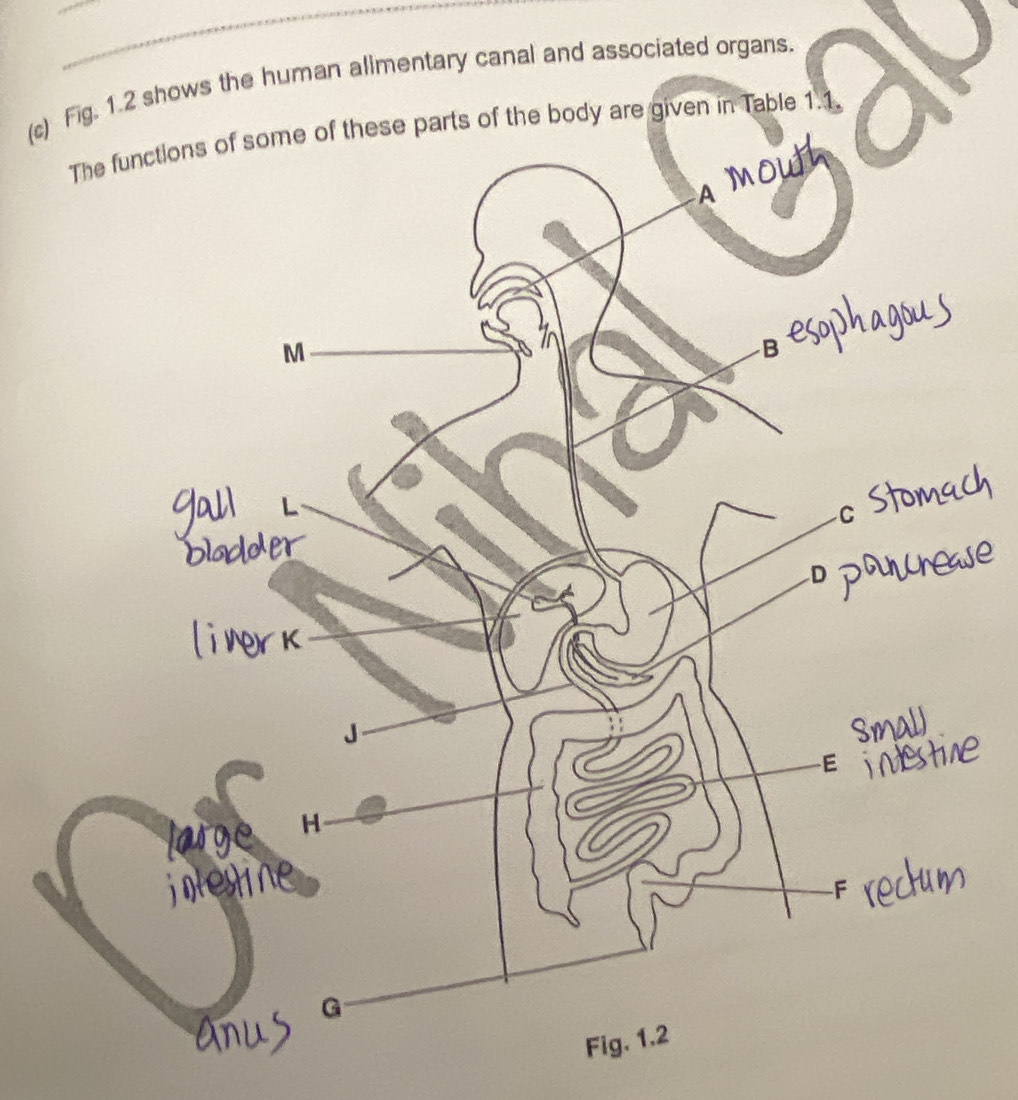 (c) Fig. 1.2 shows the human alimentary canal and associated organs.
The functions of some of these parts of the body are given in Table 1.1.
A mouth
M
B esophagous
gall L
bladder
C stomach
D pancrease
liver K
J
small
E intestine
H
large
intestine
F rectum
G
anus
Fig. 1.2
Dr Nihal Gab